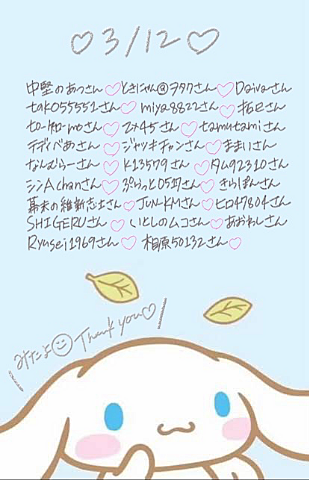 ♡3/12♡
中堅のあつさん♡ときにゃん@ヲタクさん♡Daivaさん
tak055551さん♡miya8822さん♡指Rさん
♡2×45さん♡tamutamiさん
テディべあさん♡ジャッキチャンさん♡ままいさん
なんむらーさん♡K13579さん♡タム92310さん
シンAchanさん♡ぷらっと0517さん♡きらぽんさん
幕末の維新志士さん♡JUN-KMさん♡ヒロ47804さん
SHIGERUさん♡いとしのムコさん♡あおわしさん
Ryusei1969さん♡相原50132さん♡
みたよ Thank you♡